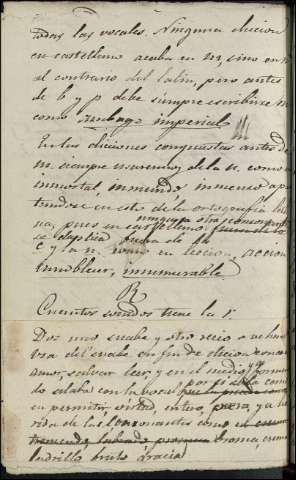 todas las vocales. Ninguna diccion
en castellano acaba en m, sino en n
al contrario del latin, pero antes
de b y p debe siempre escribirse m
como imperial
En las diciones compuestas antes de
m siempre usaremos de la n, como
inmortal inmundo inmenso apar
tandose en esto de la ortografia lati
na, pues en castellano ninguna otra consonante
se duplica fuera de la
c y la n, como en leccion, accion
innoble, innumerable
R
Cuantos sonidos tiene la r
Dos uno suabe y otro recio o vehe
del suabe en fin de diccion como
amar, saltear leer, y en el medio formando
silaba con la vocal por si sola como
y a he
rida de las consonantes como en
tremendo, labrado broma, crema
ladrillo bruto gracia